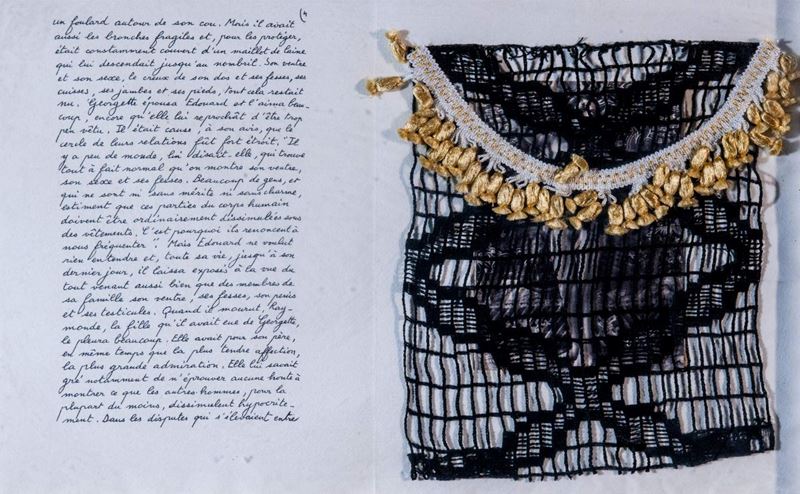 (4
un foulard autour de son cou. Mais il avait
aussi les bronches fragiles et, pour les protéger,
était constamment couvert d'un maillot de laine
qui lui descendait jusqu'au nombril. Son ventre
et son sexe, le creux de son dos et ses fesses, ses
cuisses, ses jambes et ses pieds, tout cela restait
nu. Georgette épousa Edouard et l'aima beau-
coup, encore qu'elle lui reprochât d'être trop
peu vêtu. Il était cause, à son avis, que le
cercle de leurs relations fût fort étroit. "Il
y a peu de monde, lui disait-elle, qui trouve
tout à fait normal qu'on montre son ventre,
son sexe et ses fesses. Beaucoup de gens, et
qui ne sont ni sans mérite ni sans charme,
estiment que ces parties du corps humain
doivent être ordinairement dissimulées sous
des vêtements. C'est pourquoi ils renoncent à
nous fréquenter". Mais Edouard ne voulut
rien entendre et, toute sa vie, jusqu'à son
dernier jour, il laissa exposés à la vue du
tout venant aussi bien que des membres de
sa famille son ventre, ses fesses, son pénis
et ses testicules. Quand il mourut, Ray-
monde, la fille qu'il avait eue de Georgette,
le pleura beaucoup. Elle avait pour son père,
en même temps que la plus tendre affection,
la plus grande admiration. Elle lui savait
gré notamment de n'éprouver aucune honte à
montrer ce que les autres hommes, pour la
plupart du moins, dissimulent hypocrite-
ment. Dans les disputes qui s'élevaient entre